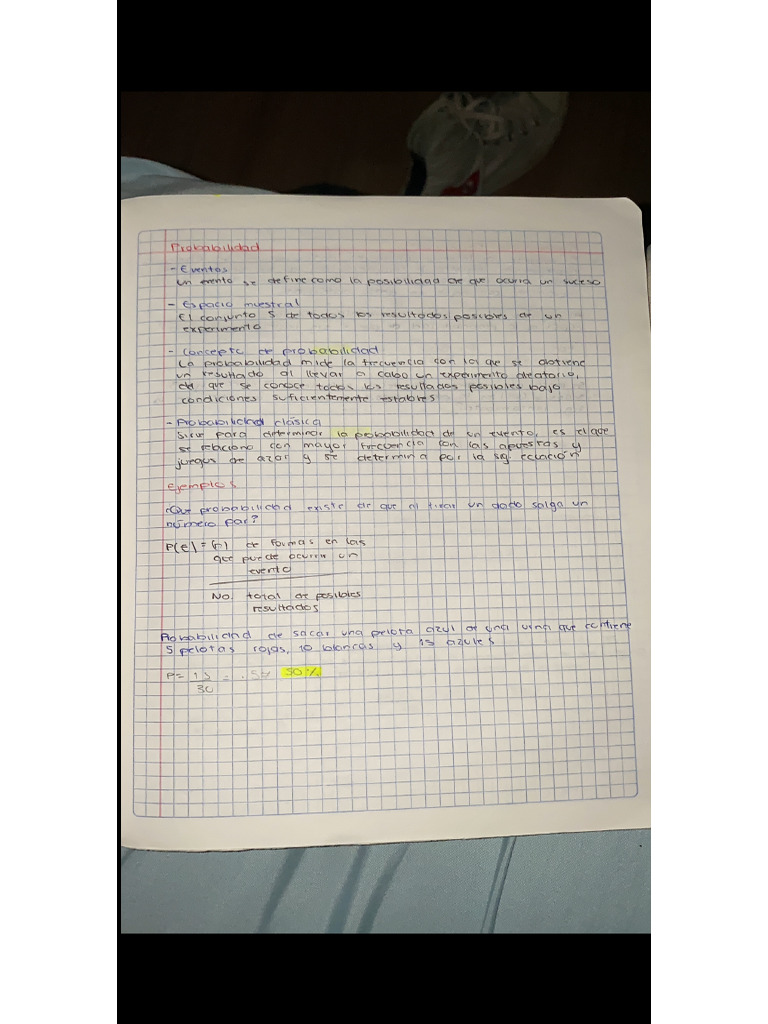 Probabilidad
- Eventos
un evento se define como la posibilidad de que ocurra un suceso
- Espacio muestral
El conjunto S de todos los resultados posibles de un
experimento
- Concepto de probabilidad
La probabilidad mide la frecuencia con la que se obtiene
un resultado al llevar a cabo un experimento aleatorio,
del que se conoce todos los resultados posibles bajo
condiciones suficientemente estables
- Probabilidad clásica
Sirve para determinar la probabilidad de un evento, es el que
se relaciona con mayor frecuencia con las apuestas y
juegos de azar y se determina por la sig. ecuación
Ejemplos
¿Que probabilidad existe de que al tirar un dado salga un
número par?
P(e) = de formas en las
que puede ocurrir un
evento
No. total de posibles
resultados
Probabilidad de sacar una pelota azul de una urna que contiene
5 pelotas rojas, 10 blancas y 15 azules
P= 15 = 50%
30